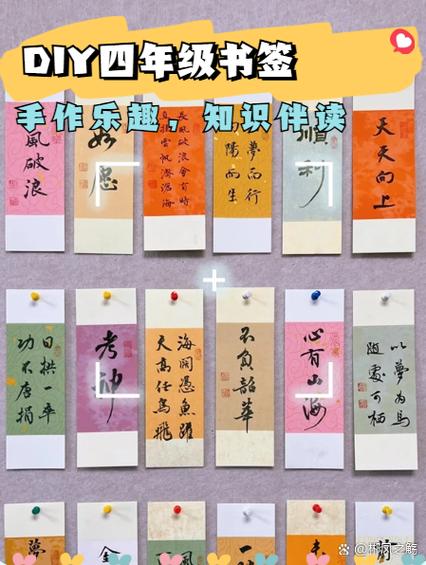 DIY四年级书签
手作乐趣，知识伴读
風破浪
如愿
長風破浪會有時
直掛雲帆濟滄海
夢而行
陽而生
順利
天天向上
日拱一卒
功不唐捐
考神
海闊憑魚躍
天高任鳥飛
不負韶華
心有山海
以夢為馬
隨處可栖
夢
金
風
一